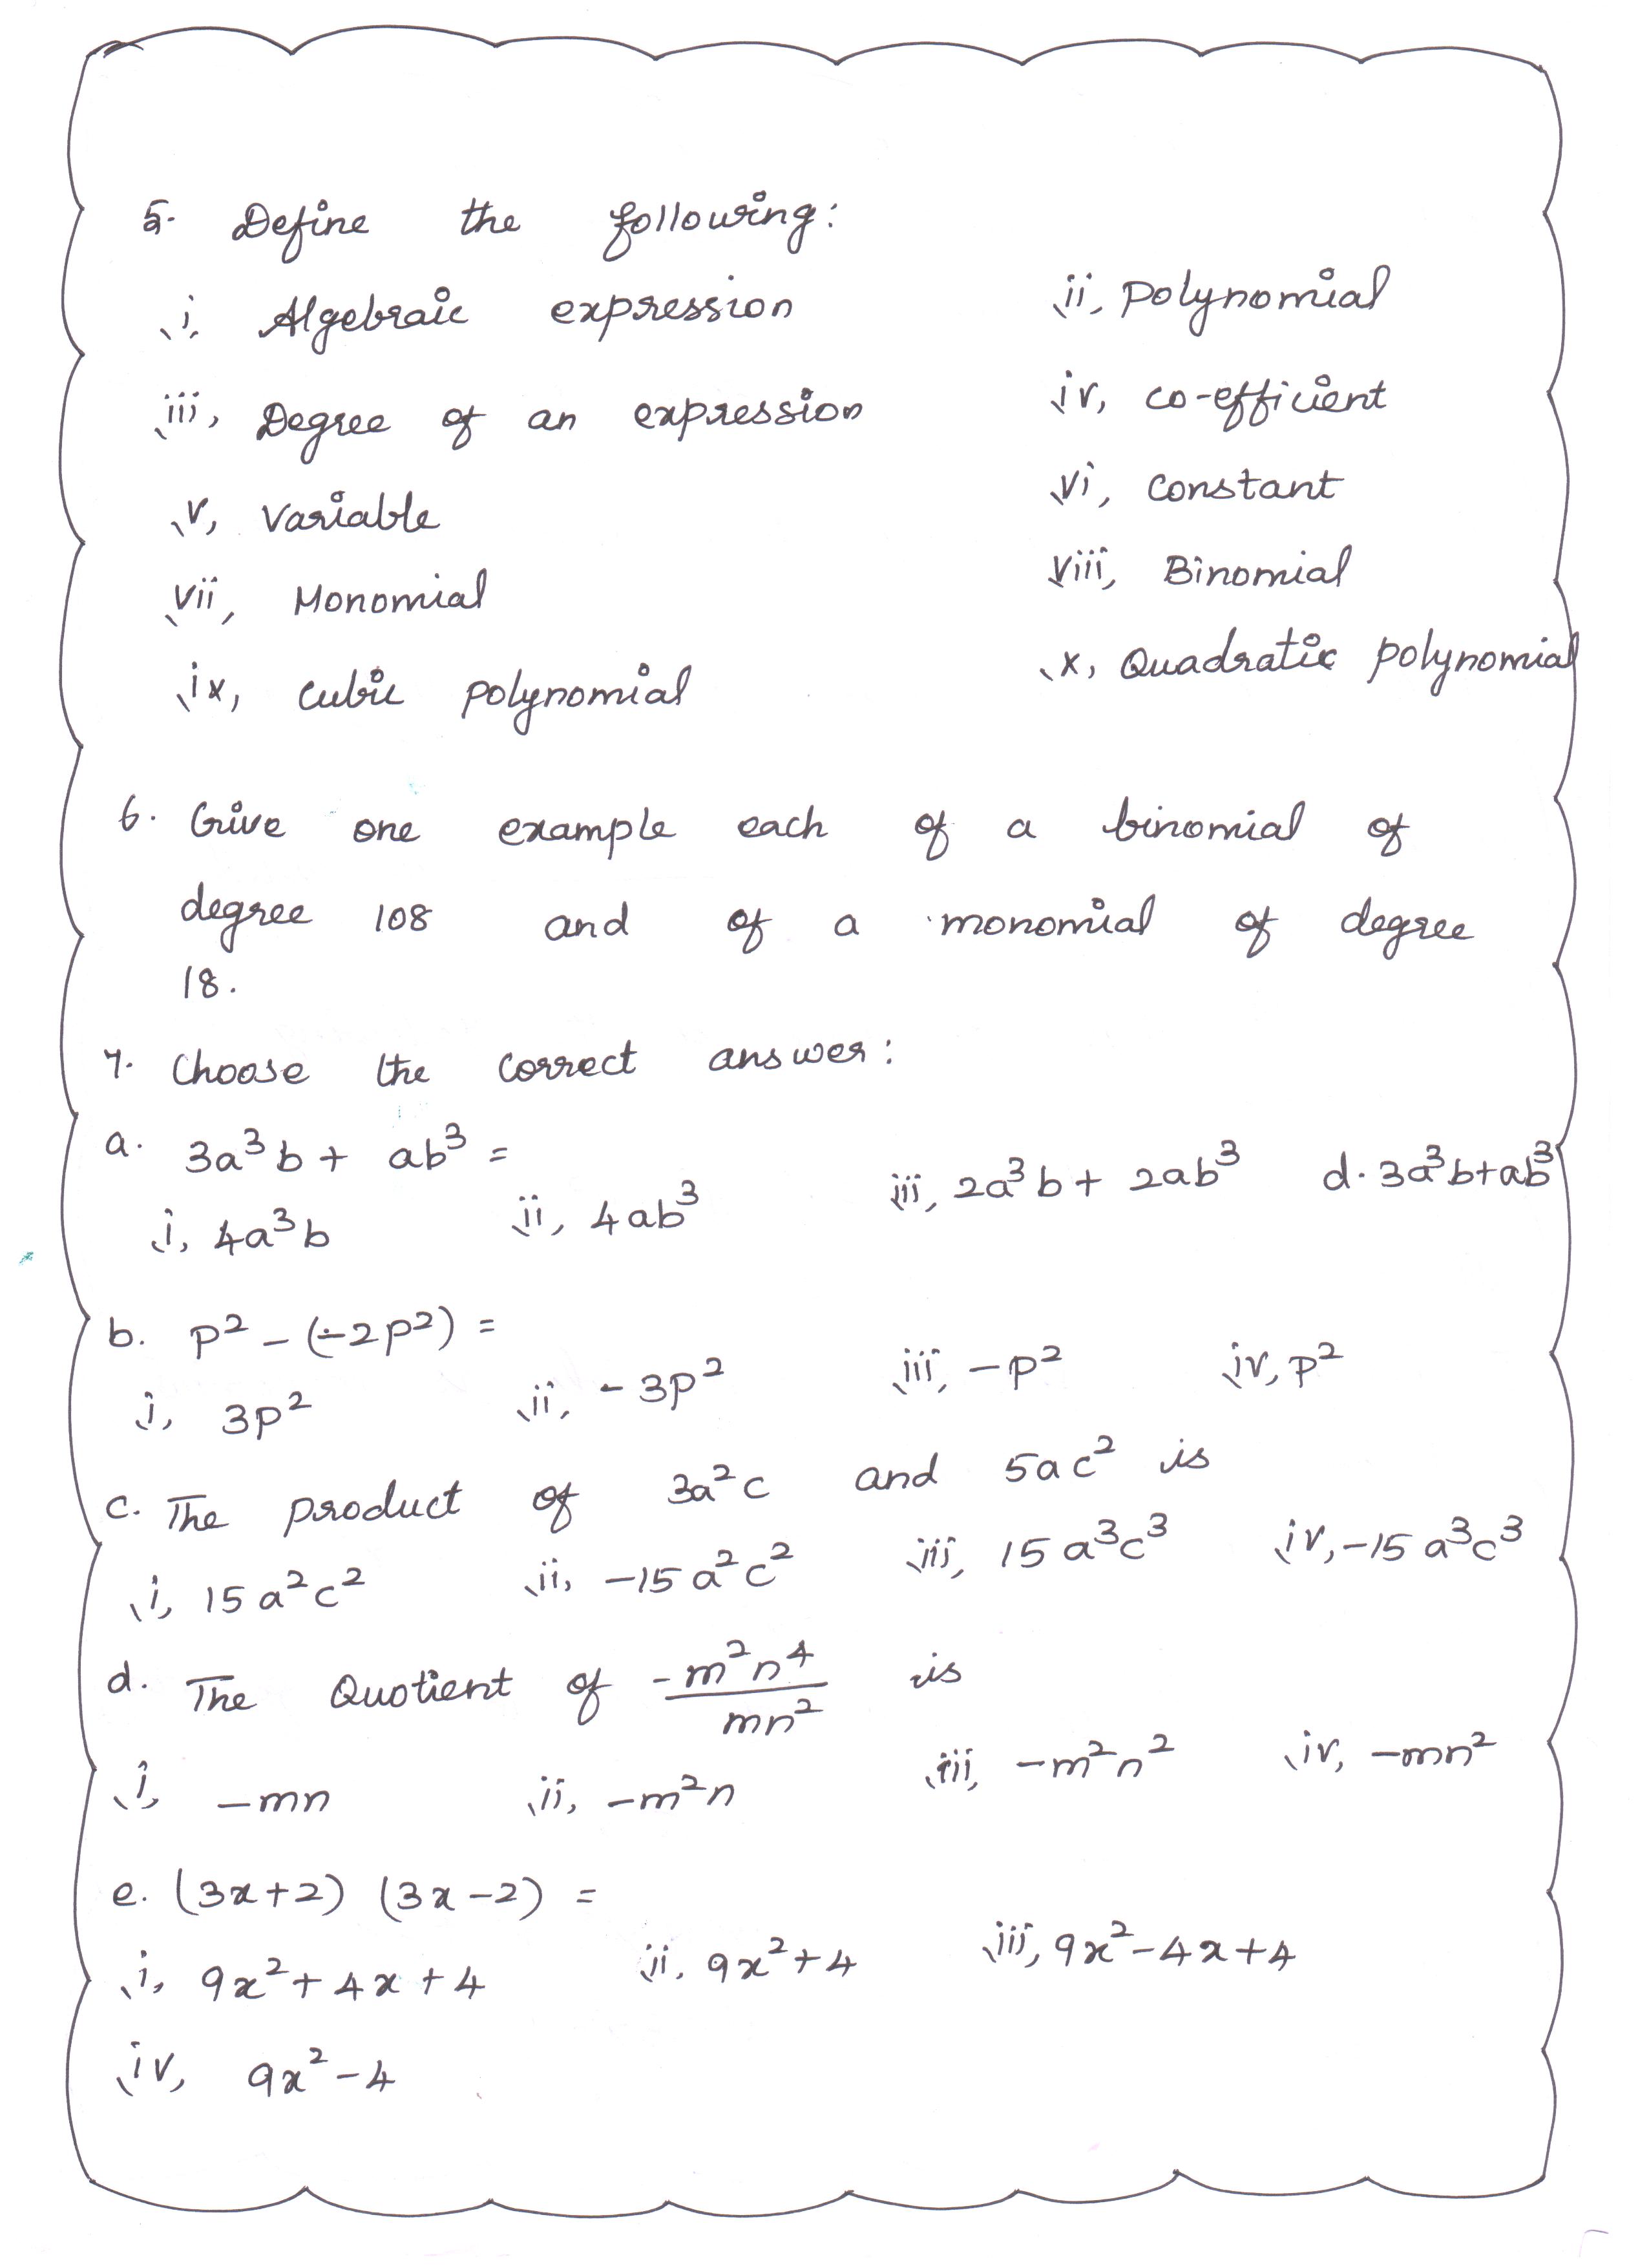 5. Define the following:
i, Algebraic expression ii, Polynomial
iii, Degree of an expression iv, co-efficient
v, Variable vi, Constant
vii, Monomial viii, Binomial
ix, Cubic polynomial x, Quadratic polynomial
6. Give one example each of a binomial of
degree 108 and of a monomial of degree
18.
7. Choose the correct answer:
a. 3a³b + ab³ =
i, 4a³b ii, 4ab³ iii, 2a³b + 2ab³ d. 3a³b+ab³
b. p² - (-2p²) =
i, 3p² ii, -3p² iii, -p² iv, p²
c. The product of 3a²c and 5ac² is
i, 15a²c² ii, -15a²c² iii, 15a³c³ iv, -15a³c³
d. The Quotient of -m²n⁴/mn² is
i, -mn ii, -m²n iii, -m²n² iv, -mn²
e. (3x+2) (3x-2) =
i, 9x²+4x+4 ii, 9x²+4 iii, 9x²-4x+4
iv, 9x²-4